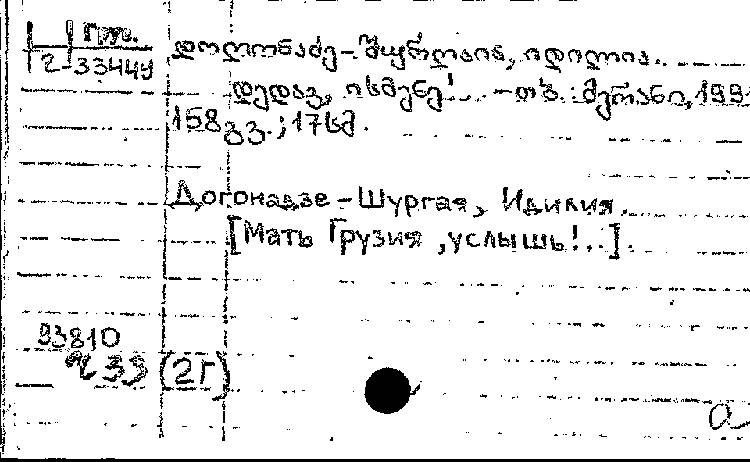 Груз.
2-33449
დოღონაძე-შურღაია, იდილია.
დედავ, ისმენე!.. -თბ.:მერანი,199
158გვ.;17სმ.
Догонадзе-Шургая, Идилия.
[Мать Грузия ,услышь!..].
93810
(2Г)
а